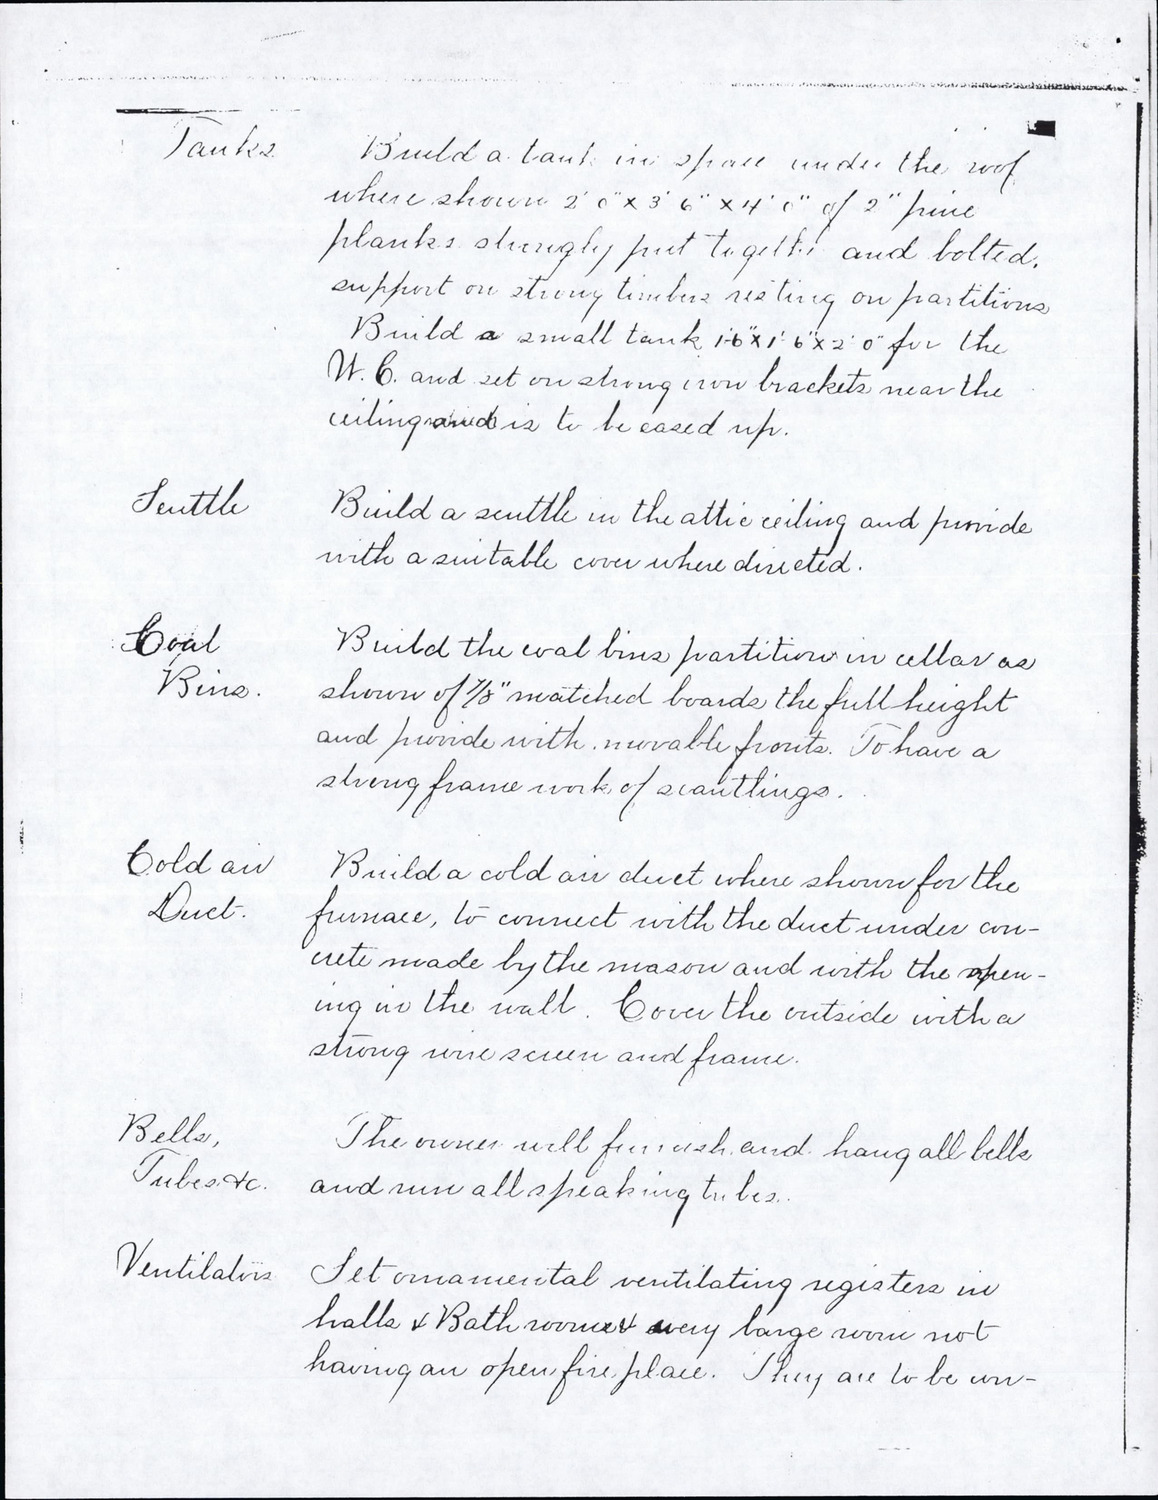 Tanks Build a tank in space under the roof
where shown 2' 0" x 3' 6" x 4' 0" of 2" pine
planks strongly put together and bolted.
support on strong timbers resting on partitions
Build a small tank 1'6" x 1' 6" x 2' 0" for the
W. C. and set on strong iron brackets near the
ceiling and is to be cased up.
Scuttle Build a scuttle in the attic ceiling and provide
with a suitable cover where directed.
Coal Build the coal bins partition in cellar as
Bins. shown of 7/8" matched boards the full height
and provide with movable fronts. To have a
strong frame work of scantlings.
Cold air Build a cold air duct where shown for the
Duct. furnace, to connect with the duct under con-
crete made by the mason and with the open-
ing in the wall. Cover the outside with a
strong wire screen and frame.
Bells, The owner will furnish and hang all bells
Tubes &c. and run all speaking tubes.
Ventilators Set ornamental ventilating registers in
halls & Bath rooms & every large room not
having an open fire place. They are to be con-